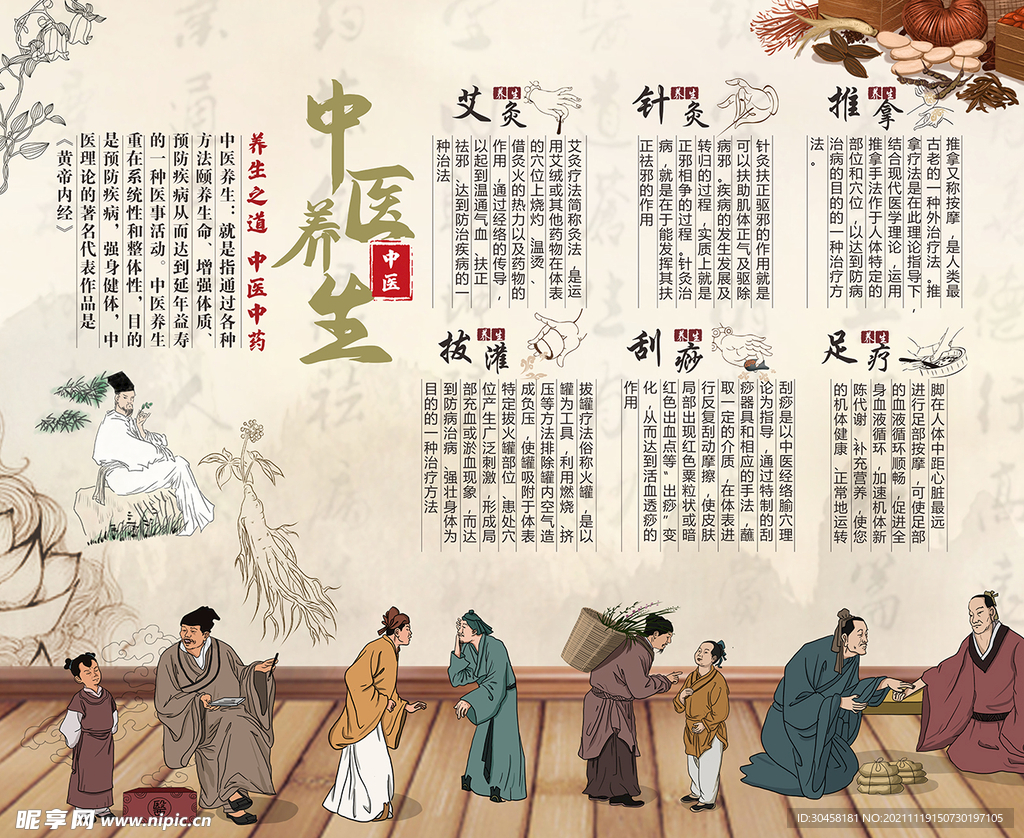 中医养生
中医
养生之道 中医中药
中医养生：就是指通过各种
方法颐养生命、增强体质、
预防疾病从而达到延年益寿
的一种医事活动。中医养生
重在系统性和整体性，目的
是预防疾病，强身健体，中
医理论的著名代表作品是
《黄帝内经》
艾灸
养生
艾灸疗法简称灸法 是运
用艾绒或其他药物在体表
的穴位上烧灼 温烫、
借灸火的热力以及药物的
作用，通过经络的传导，
以起到温通气血 扶正
祛邪、达到防治疾病的一
种治法
针灸
养生
针灸扶正驱邪的作用就是
可以扶助肌体正气及驱除
病邪。疾病的发生发展及
转归的过程，实质上就是
正邪相争的过程 针灸治
病，就是在于能发挥其扶
正祛邪的作用
推拿
养生
推拿又称按摩，是人类最
古老的一种外治疗法。推
拿疗法是在此理论指导下，
结合现代医学理论，运用
推拿手法作用于人体特定的
部位和穴位，以达到防病
治病的目的的一种治疗方
法。
拔灌
养生
拔罐疗法俗称火罐，是以
罐为工具，利用燃烧、挤
压等方法排除罐内空气，造
成负压，使罐吸附于体表
特定拔火罐部位 患处穴
位产生广泛刺激，形成局
部充血或淤血现象，而达
到防病治病 强壮身体为
目的的一种治疗方法
刮痧
养生
刮痧是以中医经络腧穴理
论为指导，通过特制的刮
痧器具和相应的手法，蘸
取一定的介质，在体表进
行反复刮动摩擦，使皮肤
局部出现红色粟粒状或暗
红色出血点等“出痧”变
化，从而达到活血透痧的
作用
足疗
养生
脚在人体中距心脏最远
进行足部按摩，可使足部
的血液循环顺畅，促进全
身血液循环，加速机体新
陈代谢 补充营养，使您
的机体健康 正常地运转
醫
昵享网 www.nipic.cn
ID:30458181 NO:20211119150730197105